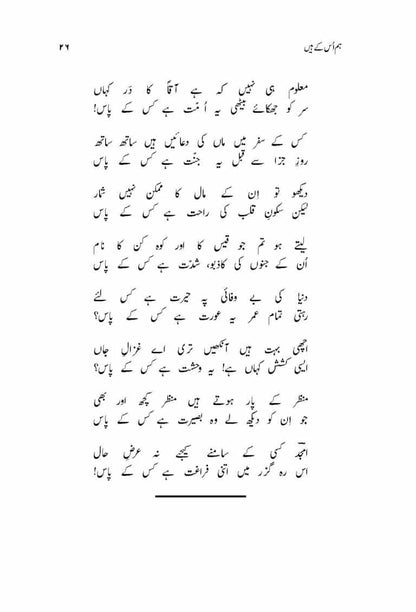 ہم اُس کے ہیں
۲۶
معلوم ہی نہیں کہ ہے آقاؐ کا دَر کہاں
سر کو جھکائے بیٹھی یہ اُمّت ہے کس کے پاس!
کس کے سفر میں ماں کی دعائیں ہیں ساتھ ساتھ
روزِ جزا سے قبل یہ جنّت ہے کس کے پاس
دیکھو تو اِن کے مال کا ممکن نہیں شمار
لیکن سکونِ قلب کی راحت ہے کس کے پاس
لیتے ہو تم جو قیس کا اور کوہ کن کا نام
اُن کے جنوں کی کاذبو، شدّت ہے کس کے پاس
دنیا کی بے وفائی پہ حیرت ہے کس لئے
رہتی تمام عمر یہ عورت ہے کس کے پاس؟
اچھی بہت ہیں آنکھیں تری اے غزالِ جاں
ایسی کشش کہاں ہے! یہ وحشت ہے کس کے پاس؟
منظر کے پار ہوتے ہیں منظر کچھ اور بھی
جو اِن کو دیکھ لے وہ بصیرت ہے کس کے پاس
امجدؔ کسی کے سامنے کیجے نہ عرضِ حال
اس رہ گزر میں اتنی فراغت ہے کس کے پاس!